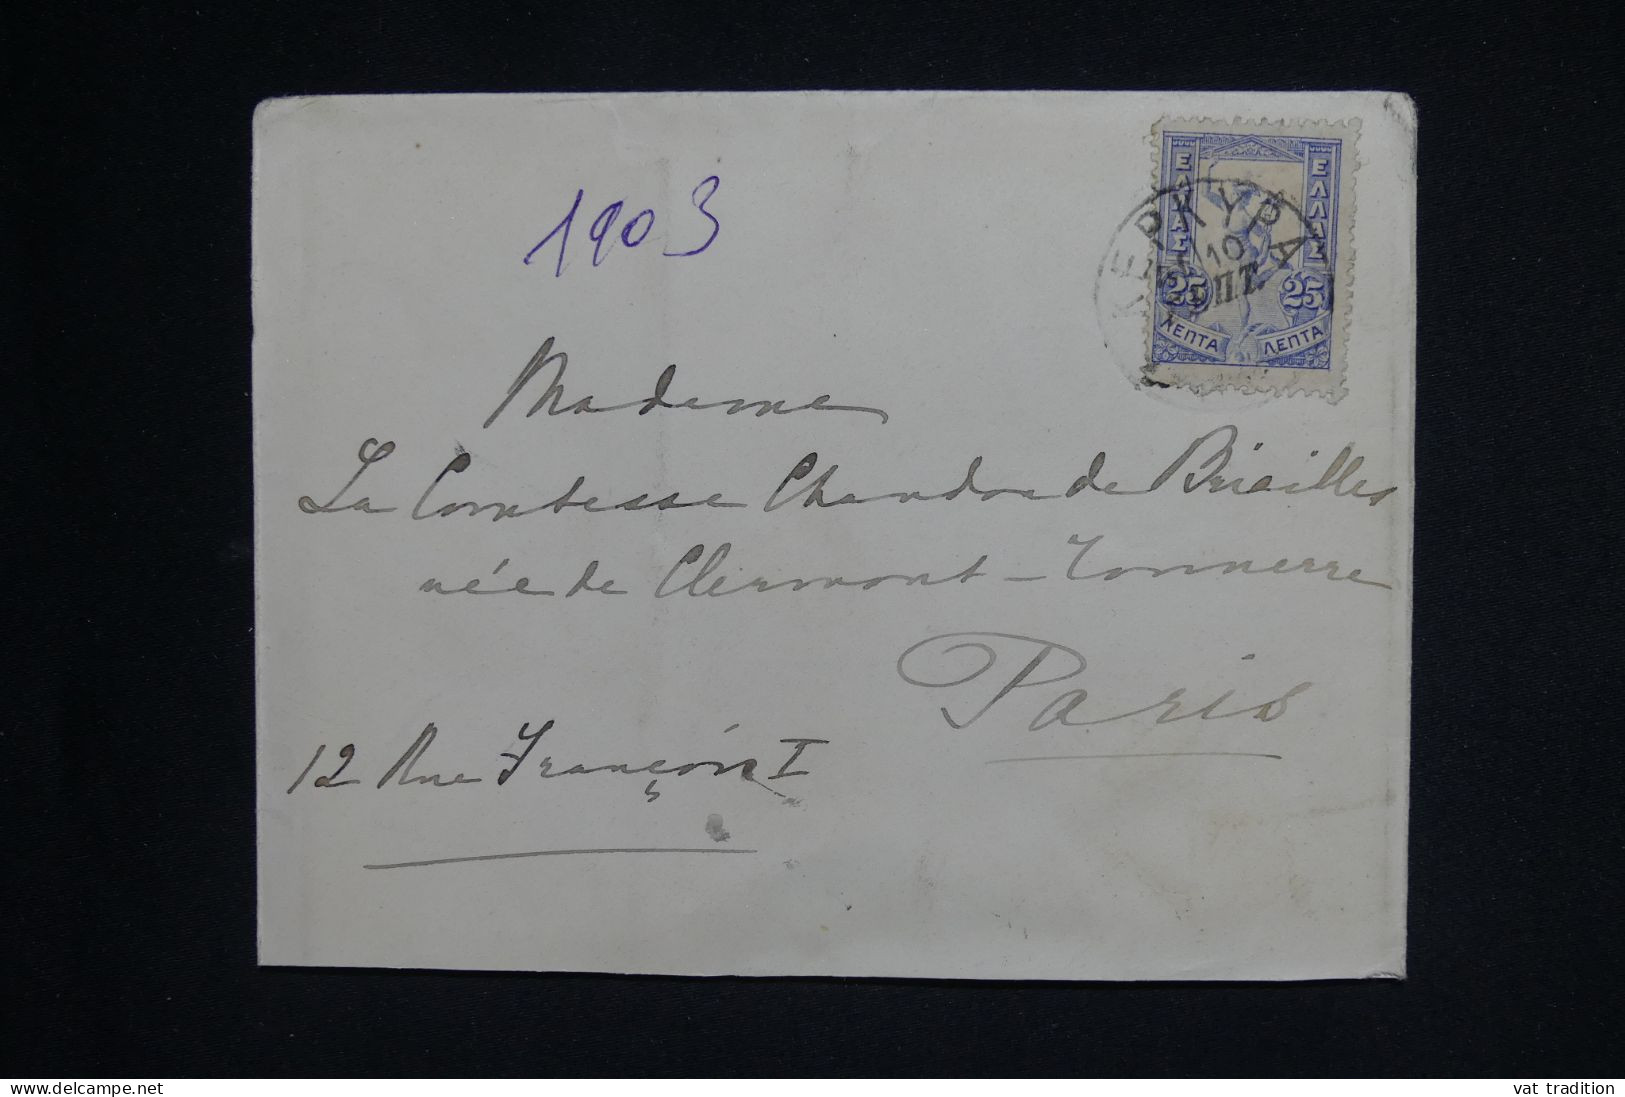 1903
ΕΛΛΑΣ ΕΛΛΑΣ
ΚΕΡΚΥΡΑ
10
ΣΕΠΤ.
25 25
ΛΕΠΤΑ ΛΕΠΤΑ
Madame
La Comtesse Chandon de Briailles
née de Clermont-Tonnerre
Paris
12 Rue François I
delcampe.net
vat tradition